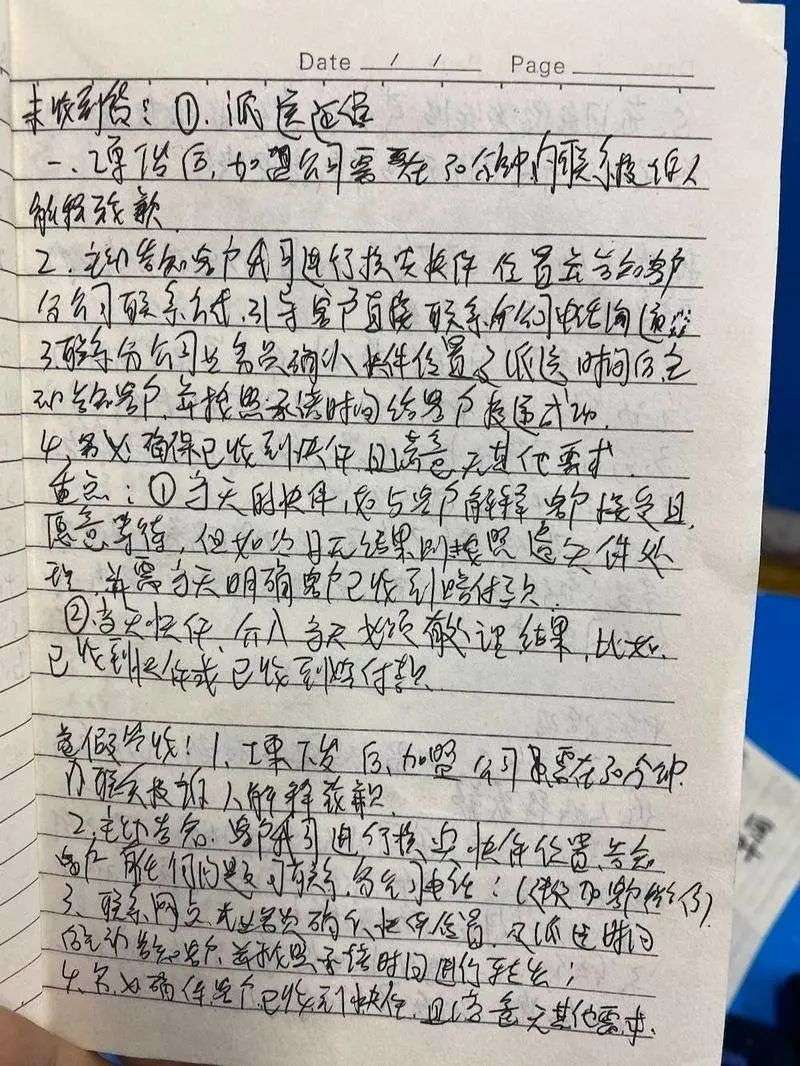 Date / / Page
未收到货：①. 派送延误
一、工单下发后, 加盟公司需要在30分钟内联系投诉人
解释致歉
2. 主动告知客户我司进行核实快件位置并告知客户
分公司联系方式, 引导客户直接联系分公司电话沟通
3.联系分公司业务员确认快件位置及派送时间后, 主
动告知客户, 并按照承诺时间给客户投递成功.
4.务必确保已收到快件且满意无其他需求.
重点：①当天的快件, 如与客户解释客户接受且
愿意等待, 但如次日无结果则按照遗失件处
理, 并需当天明确客户已收到赔付款.
②.当天快件, 介入当天必须有处理结果, 比如.
已收到快件或已收到赔付款.
虚假签收! 1、工单下发后, 加盟公司需要在30分钟
内联系投诉人解释致歉
2.主动告知. 客户我司进行核实快件位置, 告知
客户有任何问题可联系,
3、联系网点业务员确认快件位置, 及派送时间
后主动告知客户, 并按照承诺时间进行
4.务必确保客户已收到快件, 且满意无其他需求.